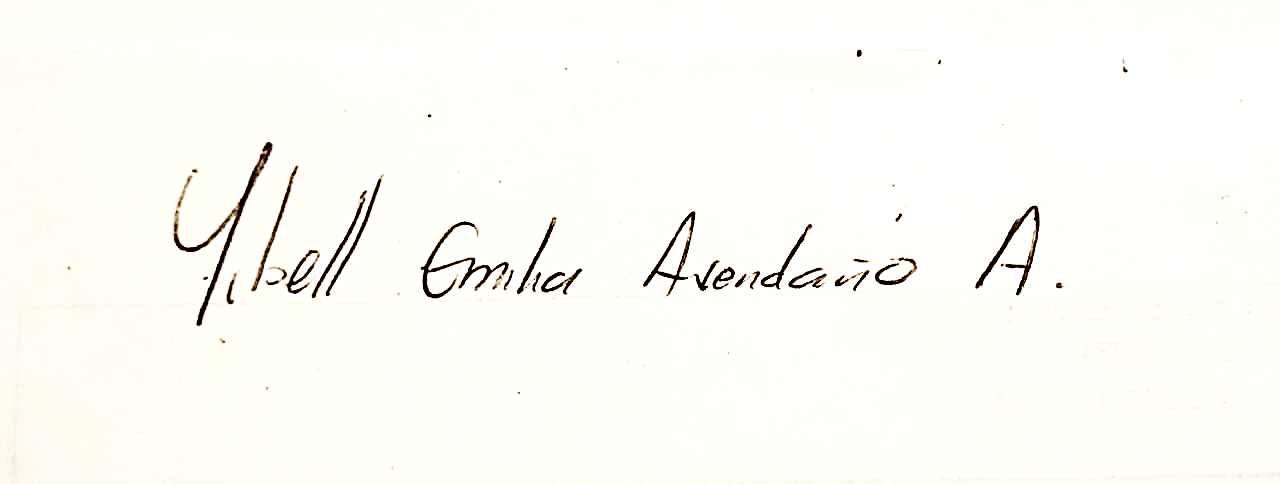 Yibell Emilia Avendaño A.